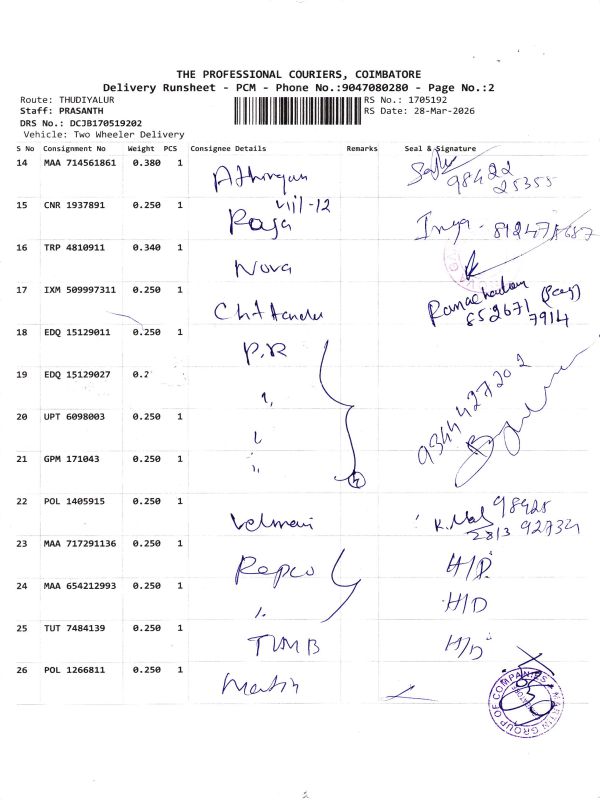 THE PROFESSIONAL COURIERS, COIMBATORE
Delivery Runsheet - PCM - Phone No.:9047080280 - Page No.:2
Route: THUDIYALUR RS No.: 1705192
Staff: PRASANTH RS Date: 28-Mar-2026
DRS No.: DCJB170519202
Vehicle: Two Wheeler Delivery
S No Consignment No Weight PCS Consignee Details Remarks Seal & Signature
14 MAA 714561861 0.380 1 98422 25355
15 CNR 1937891 0.250 1 Raja VIII-12
16 TRP 4810911 0.340 1 Nova
17 IXM 509997311 0.250 1 852671 7914
18 EDQ 15129011 0.250 1 P.R
19 EDQ 15129027 0.2 9344427202
20 UPT 6098003 0.250 1
21 GPM 171043 0.250 1 4
22 POL 1405915 0.250 1 Velmani 98428 92734
23 MAA 717291136 0.250 1 Repco H/D
24 MAA 654212993 0.250 1 H/D
25 TUT 7484139 0.250 1 TMB H/D
26 POL 1266811 0.250 1 Martin
MARTIN GROUP OF COMPANIES